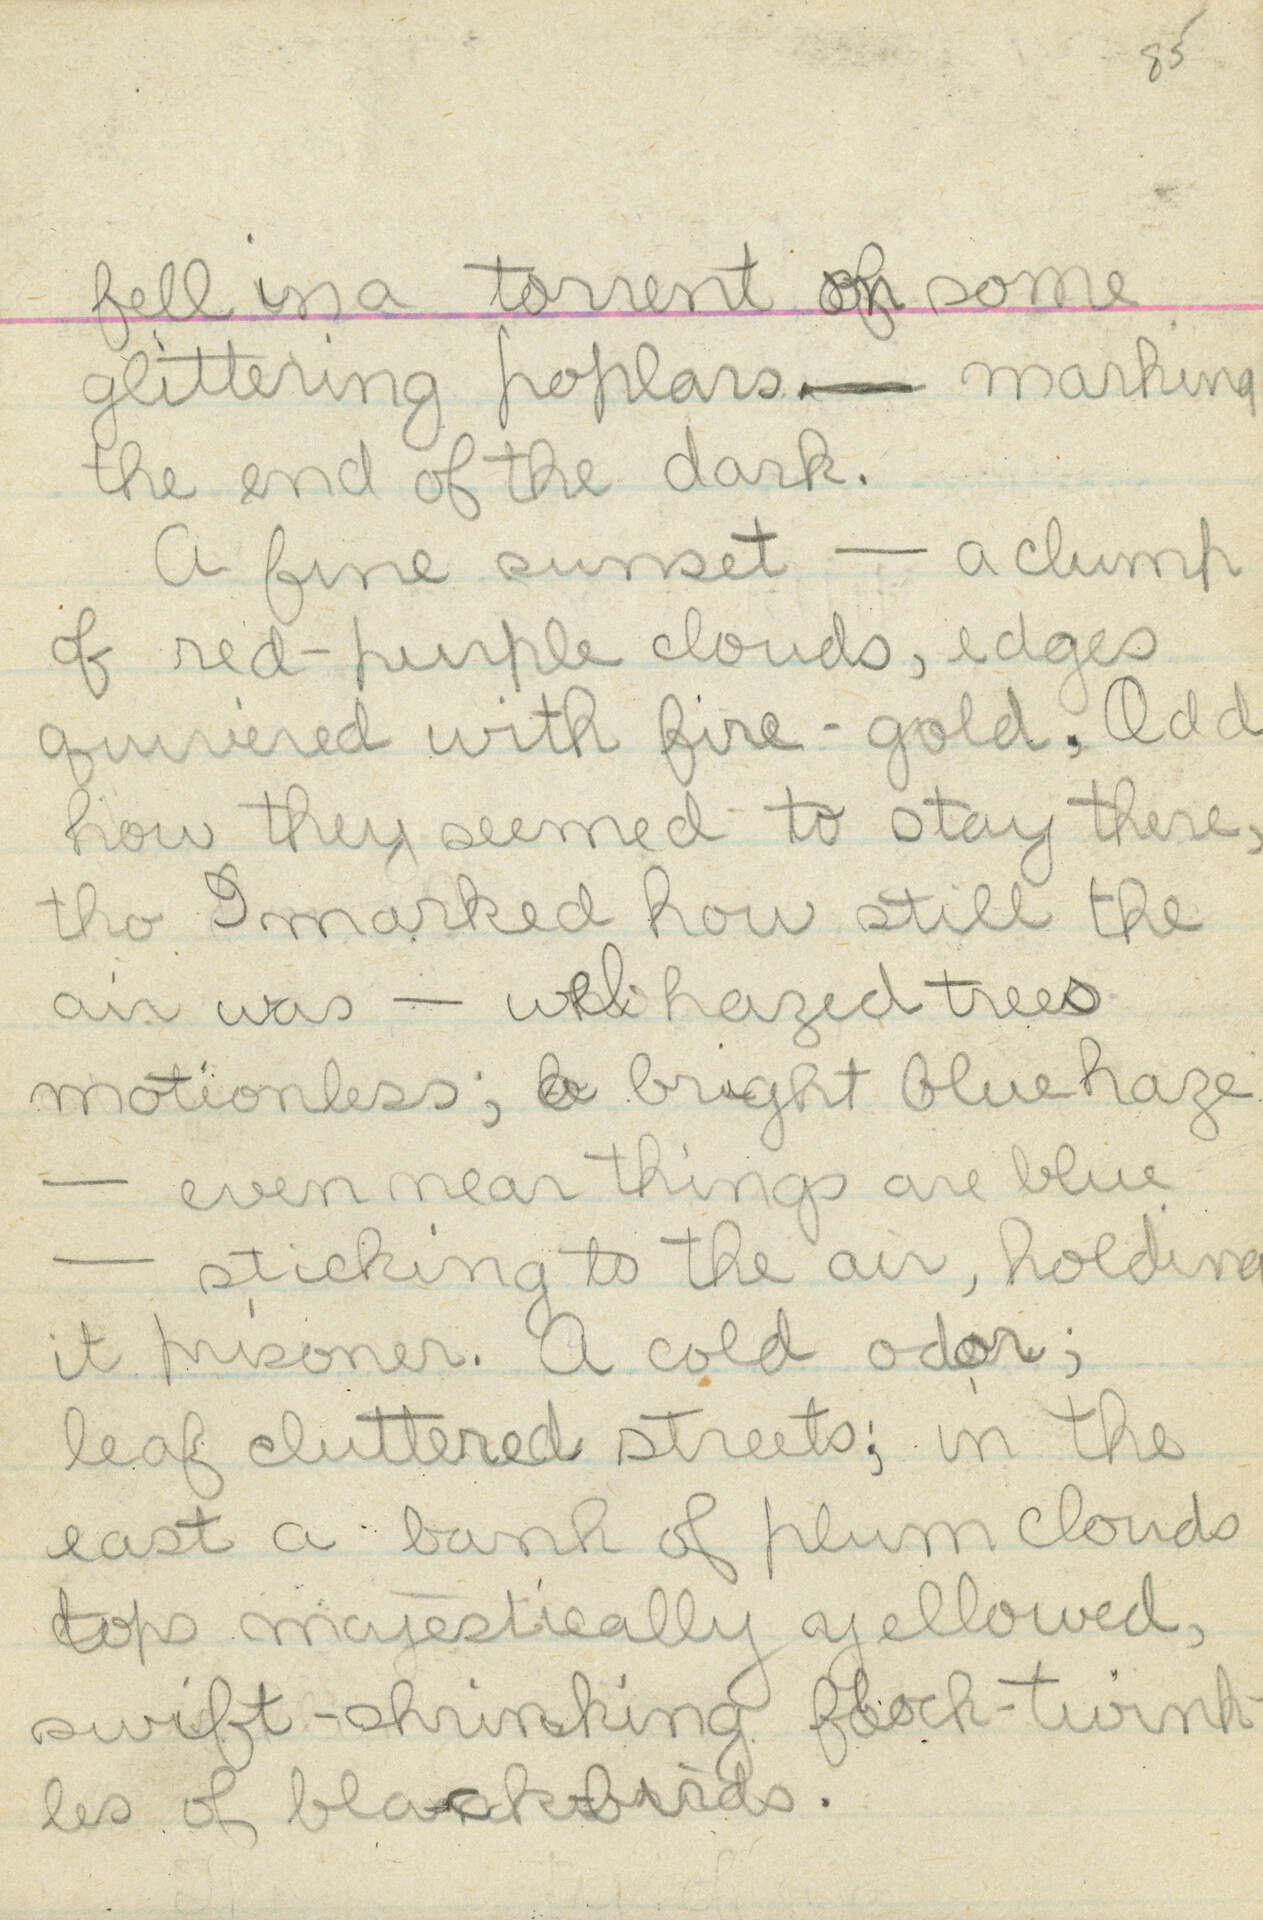 85
fell in a torrent on some
glittering poplars — marking
the end of the dark.
A fine sunset — a clump
of red-purple clouds, edges
quivered with fire-gold. Odd
how they seemed to stay there,
tho I marked how still the
air was — hazed trees
motionless; a bright blue haze
— even near things are blue
— sticking to the air, holding
it prisoner. A cold odor;
leaf cluttered streets; in the
east a bank of plum clouds
tops majestically yellowed,
swift-shrinking flock-twink-
les of blackbirds.